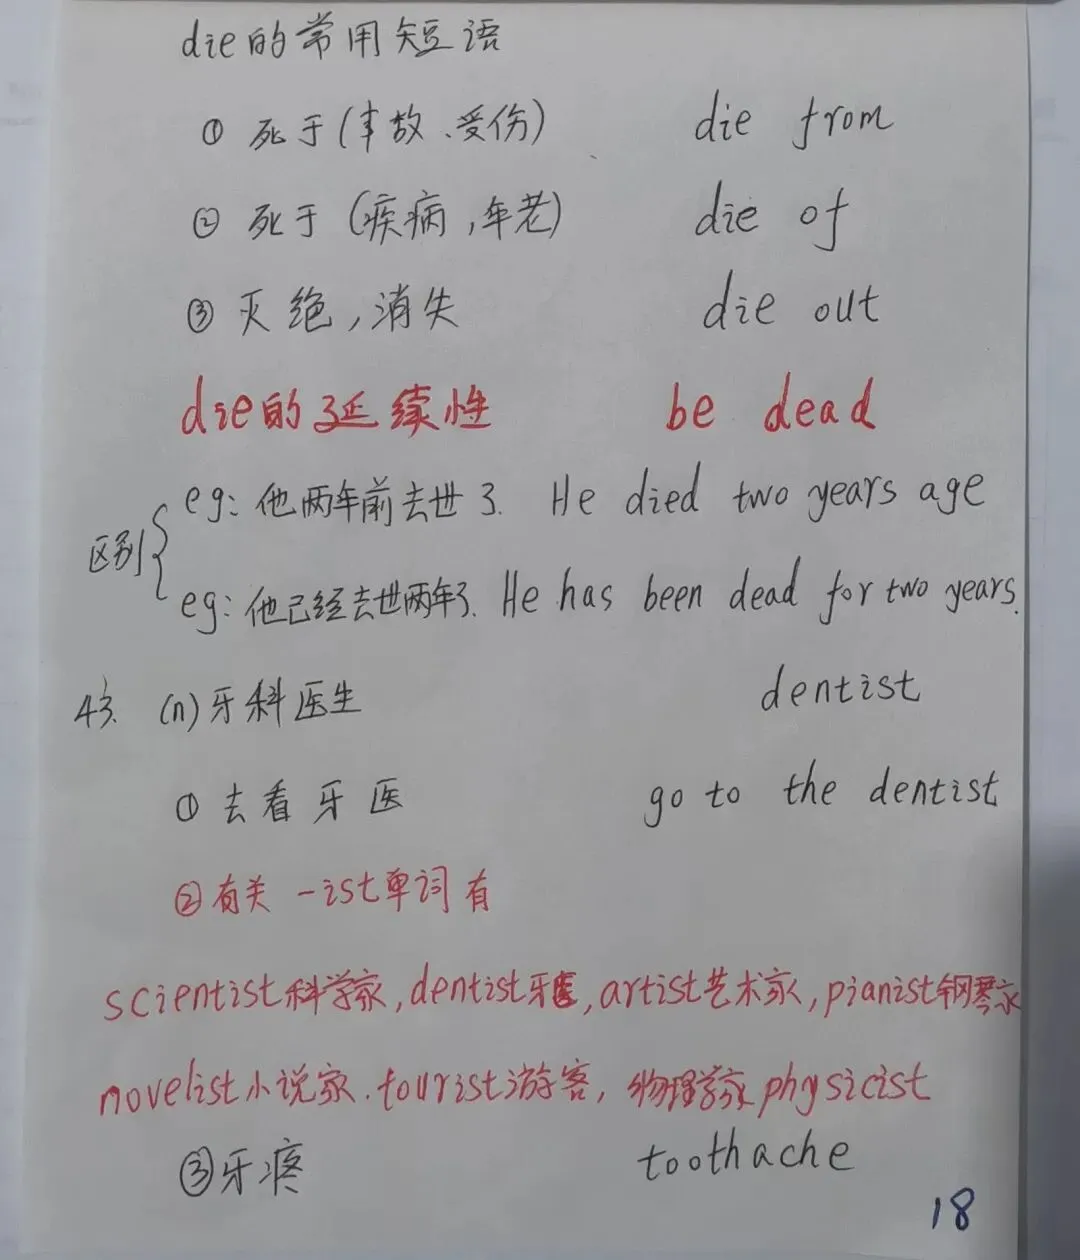 die的常用短语
① 死于(事故、受伤) die from
② 死于(疾病,年老) die of
③ 灭绝,消失 die out
die的延续性 be dead
eg: 他两年前去世了. He died two years age
区别
eg: 他已经去世两年了. He has been dead for two years.
43. (n)牙科医生 dentist
① 去看牙医 go to the dentist
② 有关 -ist单词有
scientist科学家,dentist牙医,artist艺术家,pianist钢琴家
novelist小说家.tourist游客,物理学家physicist
③牙疼 toothache
18